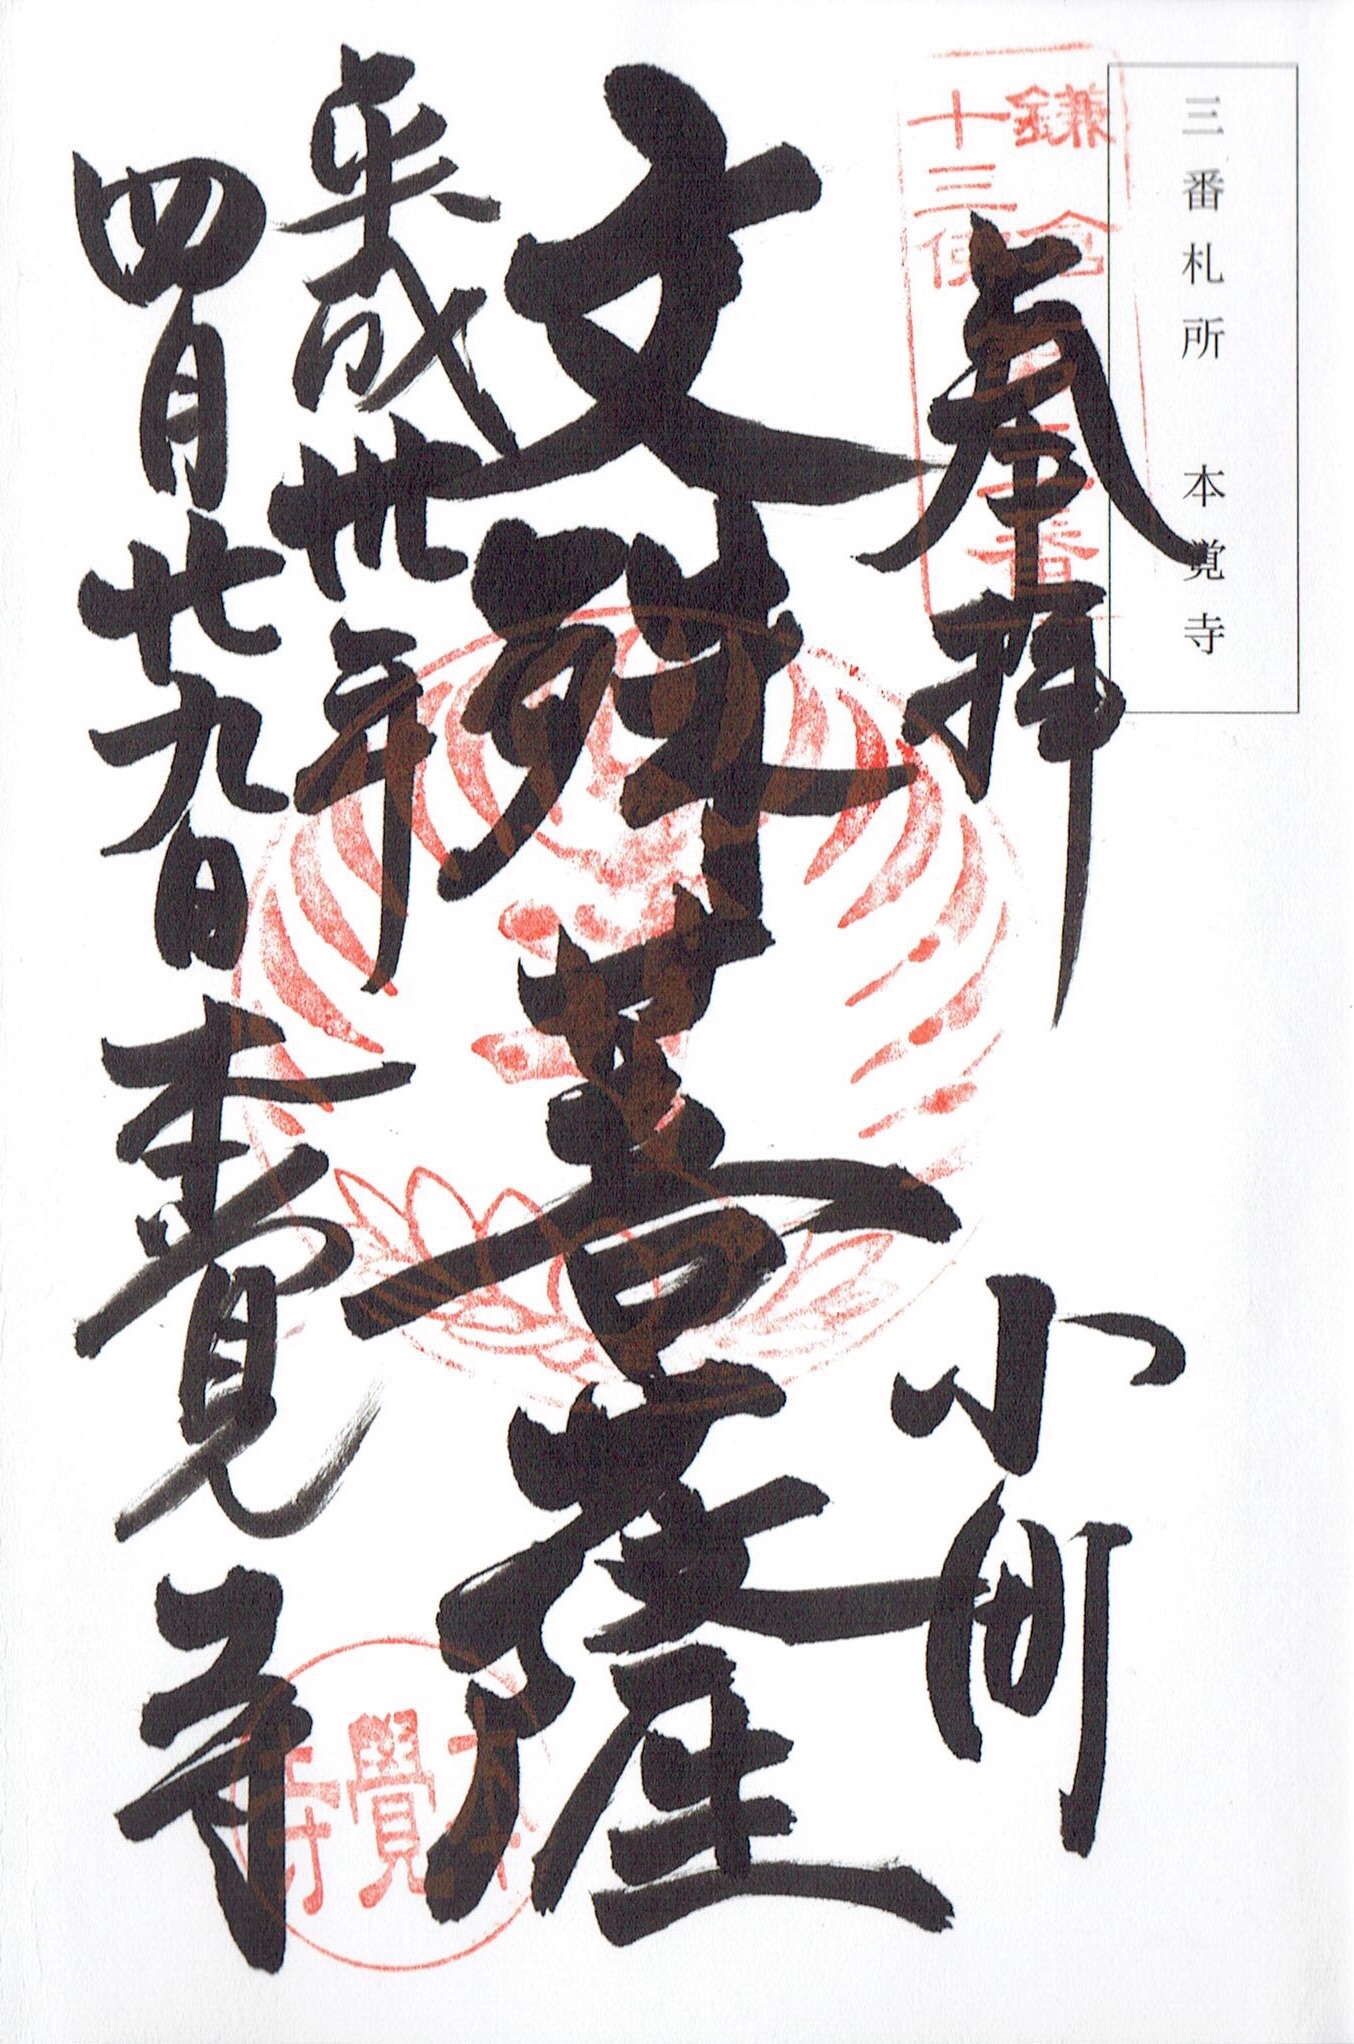 三番札所 本覚寺
鎌倉
十三仏
第三番
奉拝
小町
文殊菩薩
平成卅年
四月廿九日
本覺寺
本覺寺